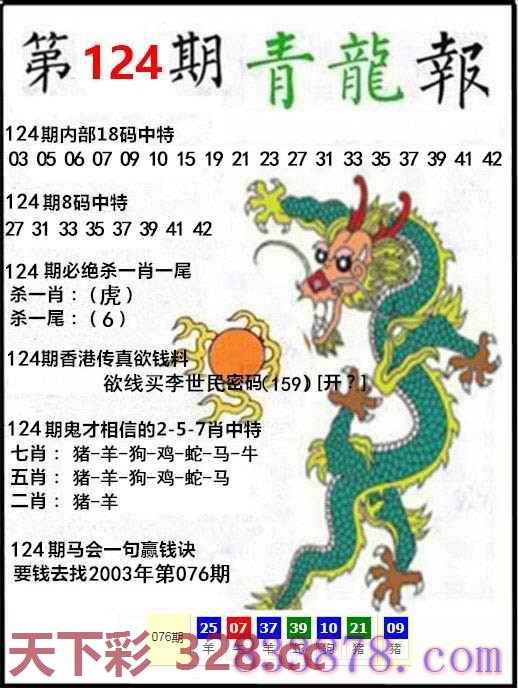 第124期 青龍報
124期内部18码中特
03 05 06 07 09 10 15 19 21 23 27 31 33 35 37 39 41 42
124期8码中特
27 31 33 35 37 39 41 42
124期必绝杀一肖一尾
杀一肖：（虎）
杀一尾：（6）
124期香港传真欲钱料
欲线买李世民密码(159) [开？]
124期鬼才相信的2-5-7肖中特
七肖：猪-羊-狗-鸡-蛇-马-牛
五肖：猪-羊-狗-鸡-蛇-马
二肖：猪-羊
124期马会一句赢钱诀
要钱去找2003年第076期
076期 25 07 37 39 10 21 09
羊 牛 羊 蛇 狗 猪 猪
天下彩 328.cc
838878.com